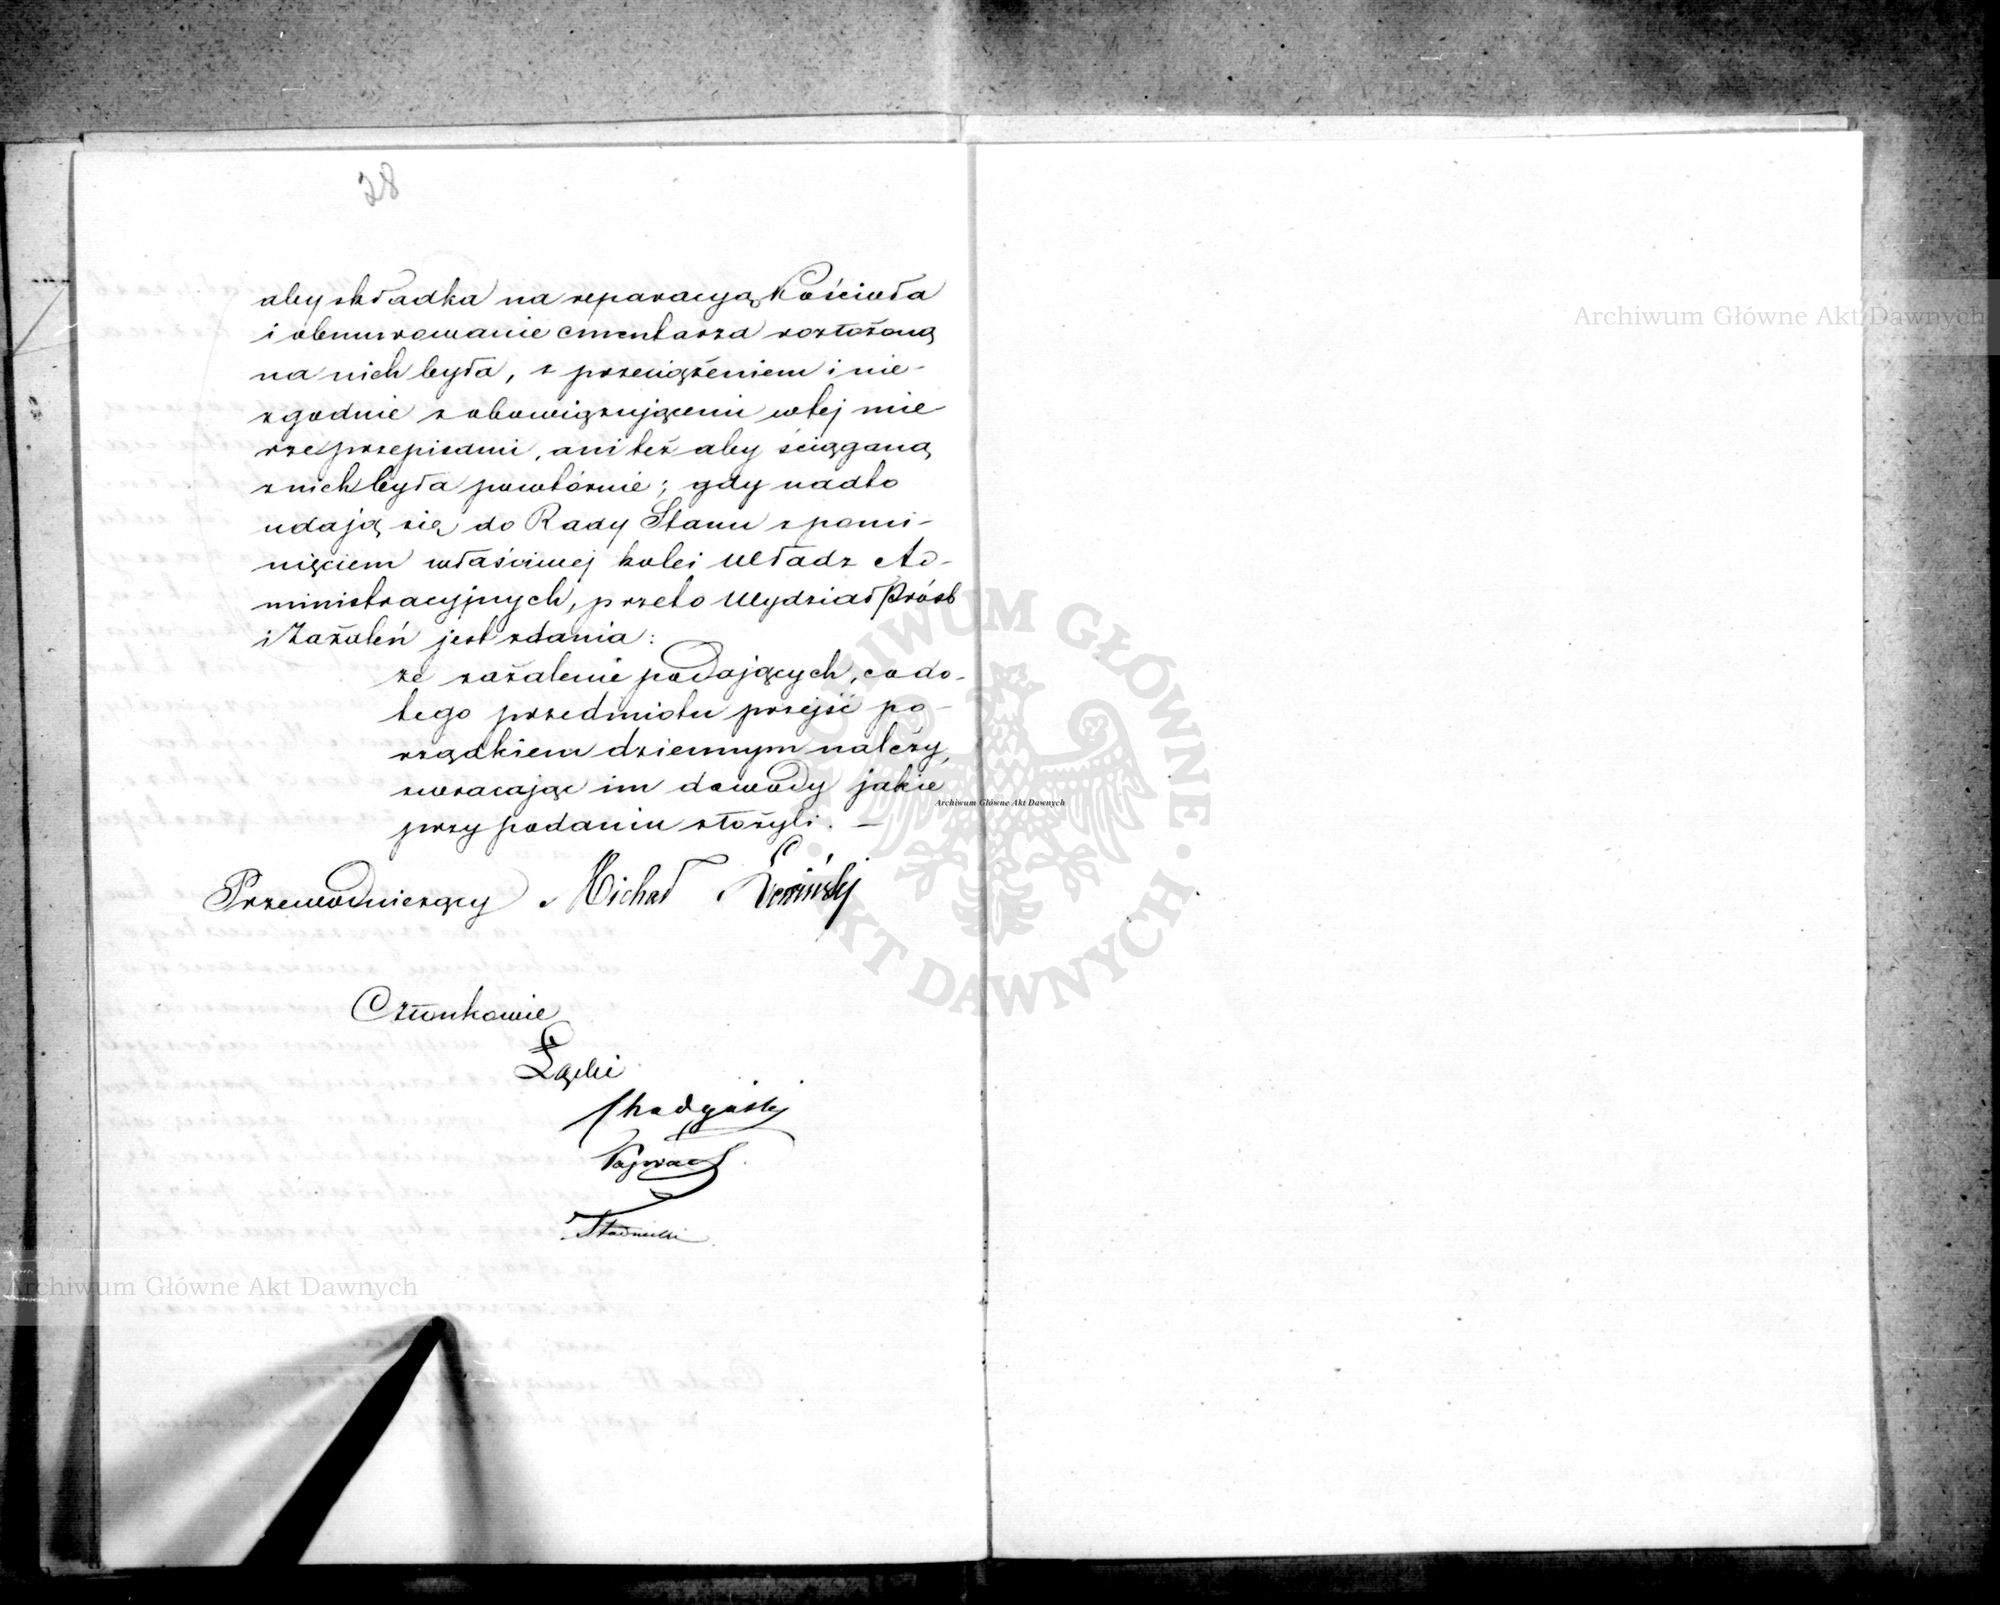 28
aby składka na reparacyą Kościoła
i obmurowanie cmentarza rozłożoną
na nich była, z przeciążeniem i nie-
zgodnie z obowiązującemi w tej mie-
rze przepisami, ani też aby ściąganą
z nich była powtórnie; gdy nadto
udają się do Rady Stanu z pomi-
nięciem właściwej kolei Władz Ad-
ministracyjnych, przeto Wydział Próśb
i Zażaleń jest zdania:
że zażalenie podających, co do
tego przedmiotu przejść po-
rządkiem dziennym należy,
zwracając im dowody jakie
przy podaniu złożyli. —
Przewodniczący Michał
Członkowie
Łącki
Stadnicki
Archiwum Główne Akt Dawnych
Archiwum Główne Akt Dawnych
Archiwum Główne Akt Dawnych
ARCHIWUM GŁÓWNE · AKT DAWNYCH ·